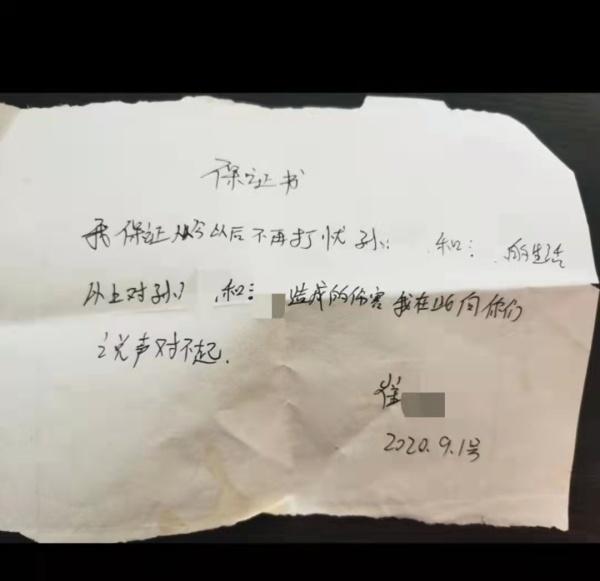 保证书
我保证从今以后不再打忧孙 和 的生活
以上对孙 和 造成的伤害我在此向你们
说声对不起.
崔
2020.9.1号